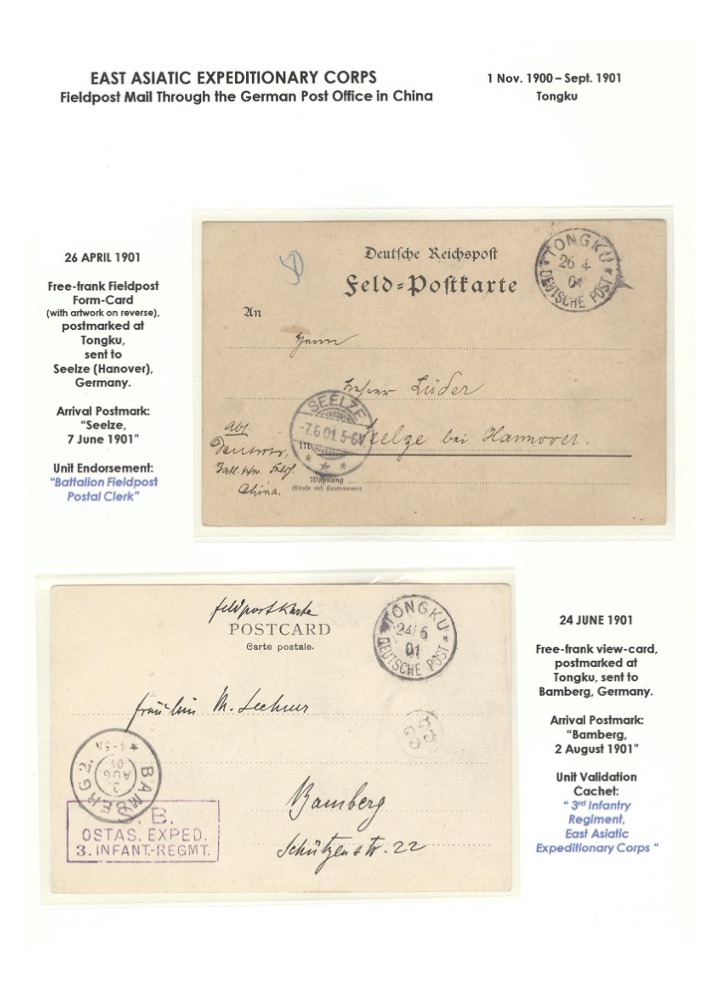 EAST ASIATIC EXPEDITIONARY CORPS
Fieldpost Mail Through the German Post Office in China
1 Nov. 1900 – Sept. 1901
Tongku
26 APRIL 1901
Free-frank Fieldpost
Form-Card
(with artwork on reverse),
postmarked at
Tongku,
sent to
Seelze (Hanover),
Germany.
Arrival Postmark:
"Seelze,
7 June 1901"
Unit Endorsement:
"Battalion Fieldpost
Postal Clerk"
Deutsche Reichspost
Feld=Postkarte
TONGKU
26 4
01
DEUTSCHE POST
An
Herrn
Lüder
SEELZE
-7.6 01. 5-6N
Seelze bei Hannover.
Abs.
China.
Wohnung
(Straße und Hausnummer)
Feldpostkarte
POSTCARD
Carte postale.
TONGKU
24/6
01
DEUTSCHE POST
Fräulein M. Lechner
33
BAMBERG 2.
2.
AUG
01
Bamberg
Schützenstr. 22
S. B.
OSTAS. EXPED.
3. INFANT.-REGMT.
24 JUNE 1901
Free-frank view-card,
postmarked at
Tongku, sent to
Bamberg, Germany.
Arrival Postmark:
"Bamberg,
2 August 1901"
Unit Validation
Cachet:
" 3rd Infantry
Regiment,
East Asiatic
Expeditionary Corps "